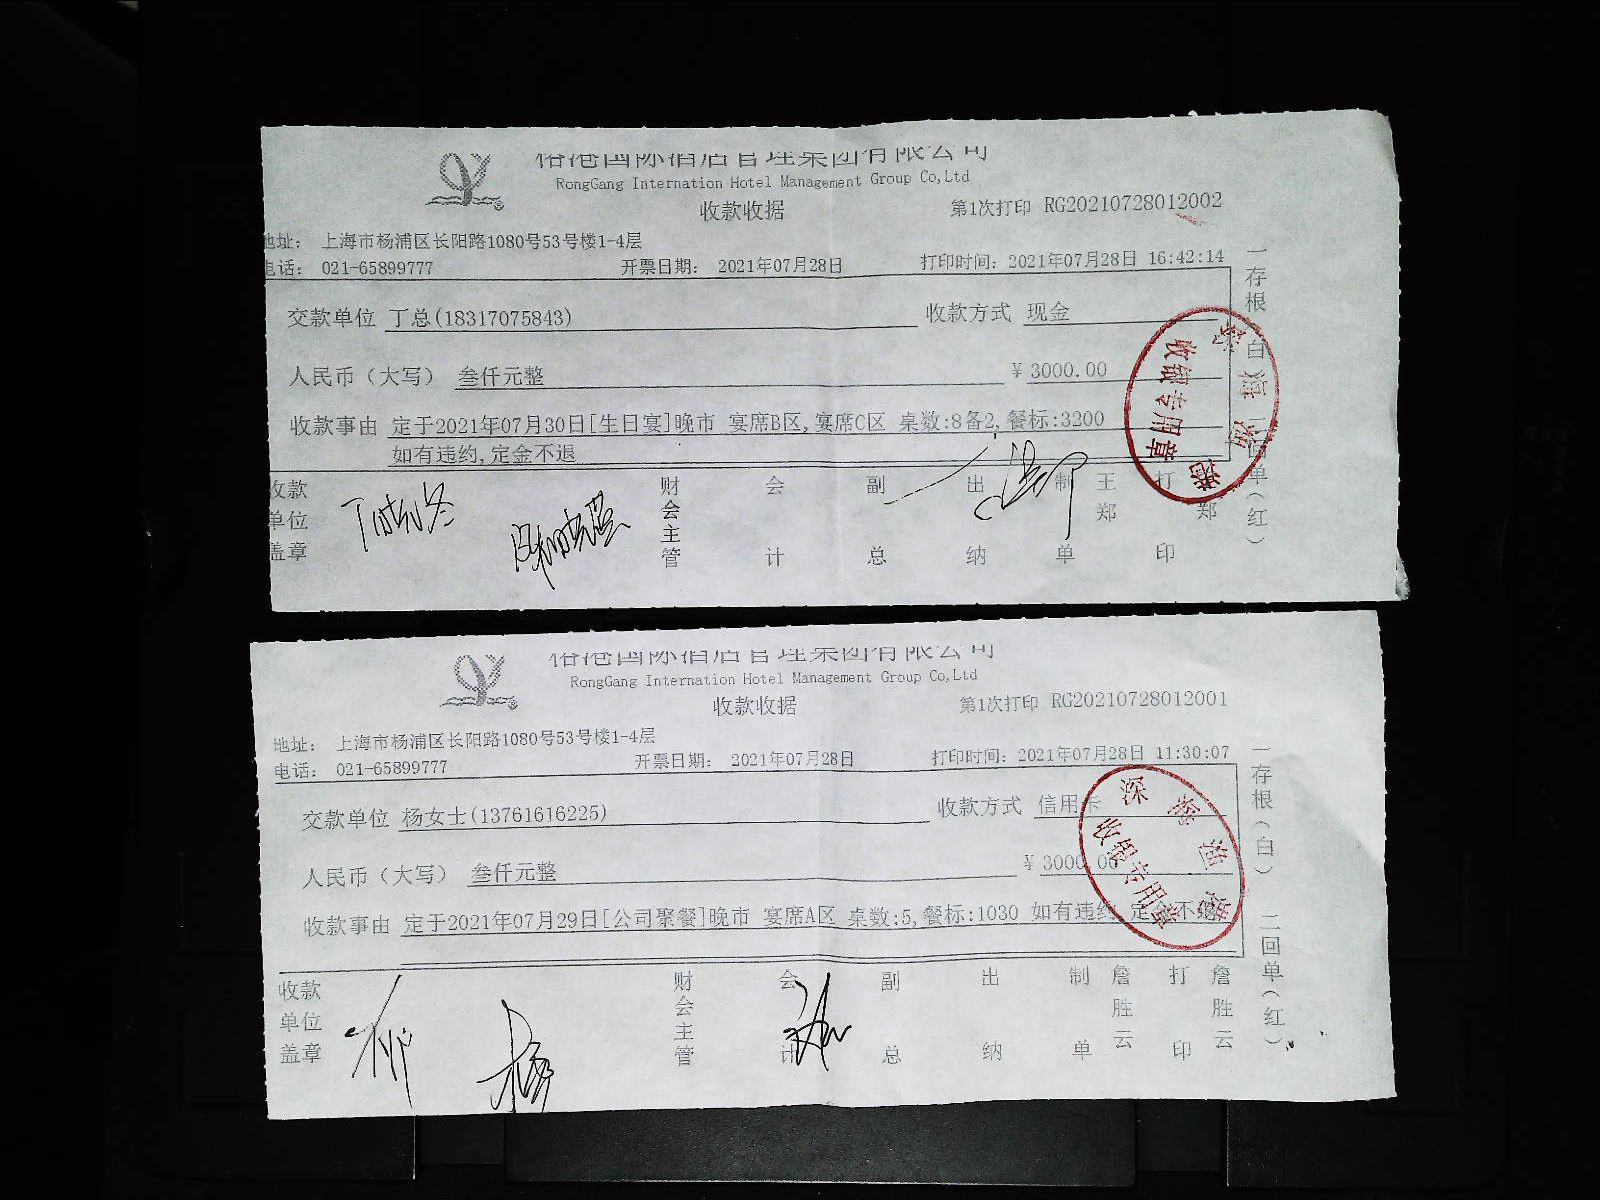 国际酒店管理集团有限公司
RongGang Internation Hotel Management Group Co,Ltd
收款收据
第1次打印 RG20210728012002
地址： 上海市杨浦区长阳路1080号53号楼1-4层
电话： 021-65899777
开票日期： 2021年07月28日
打印时间：2021年07月28日 16:42:14
交款单位 丁总(18317075843)
收款方式 现金
人民币（大写） 叁仟元整
￥3000.00
收款事由 定于2021年07月30日[生日宴]晚市 宴席B区,宴席C区 桌数:8备2,餐标:3200
如有违约,定金不退
收款单位盖章
财会主管
会计
副总
出纳
制单
王郑
打印
郑
一存根（白）二回单（红）
收银专用章
国际酒店管理集团有限公司
RongGang Internation Hotel Management Group Co,Ltd
收款收据
第1次打印 RG20210728012001
地址： 上海市杨浦区长阳路1080号53号楼1-4层
电话： 021-65899777
开票日期： 2021年07月28日
打印时间：2021年07月28日 11:30:07
交款单位 杨女士(13761616225)
收款方式 信用卡
人民币（大写） 叁仟元整
￥3000.00
收款事由 定于2021年07月29日[公司聚餐]晚市 宴席A区 桌数:5,餐标:1030 如有违约,定金不退
收款单位盖章
财会主管
会计
副总
出纳
制单
詹胜云
打印
詹胜云
一存根（白）二回单（红）
深海渔港
收银专用章